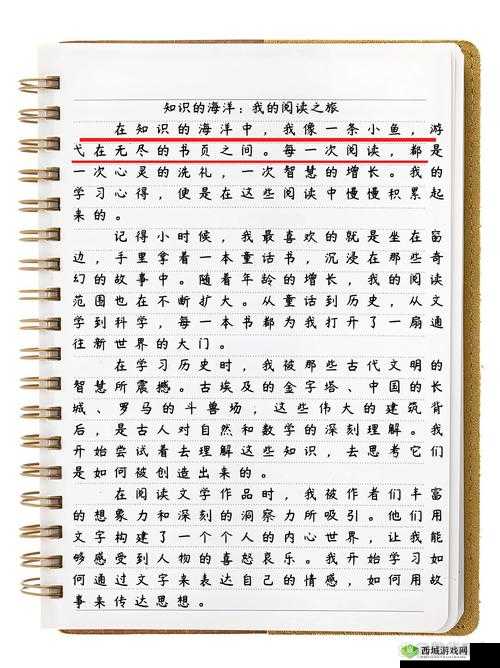 知识的海洋：我的阅读之旅
在知识的海洋中，我像一条小鱼，游
弋在无尽的书页之间。每一次阅读，都是
一次心灵的洗礼，一次智慧的增长。我的
学习心得，便是在这些阅读中慢慢积累起
来的。
记得小时候，我最喜欢的就是坐在窗
边，手里拿着一本童话书，沉浸在那些奇
幻的故事中。随着年龄的增长，我的阅读
范围也在不断扩大。从童话到历史，从文
学到科学，每一本书都为我打开了一扇通
往新世界的大门。
在学习历史时，我被那些古代文明的
智慧所震撼。古埃及的金字塔、中国的长
城、罗马的斗兽场，这些伟大的建筑背
后，是古人对自然和数学的深刻理解。我
开始尝试着去理解这些知识，去思考它们
是如何被创造出来的。
在阅读文学作品时，我被作者们丰富
的想象力和深刻的洞察力所吸引。他们用
文字构建了一个个人的内心世界，让我能
够感受到人物的喜怒哀乐。我开始学习如
何通过文字来表达自己的情感，如何用故
事来传达思想。
西城游戏网